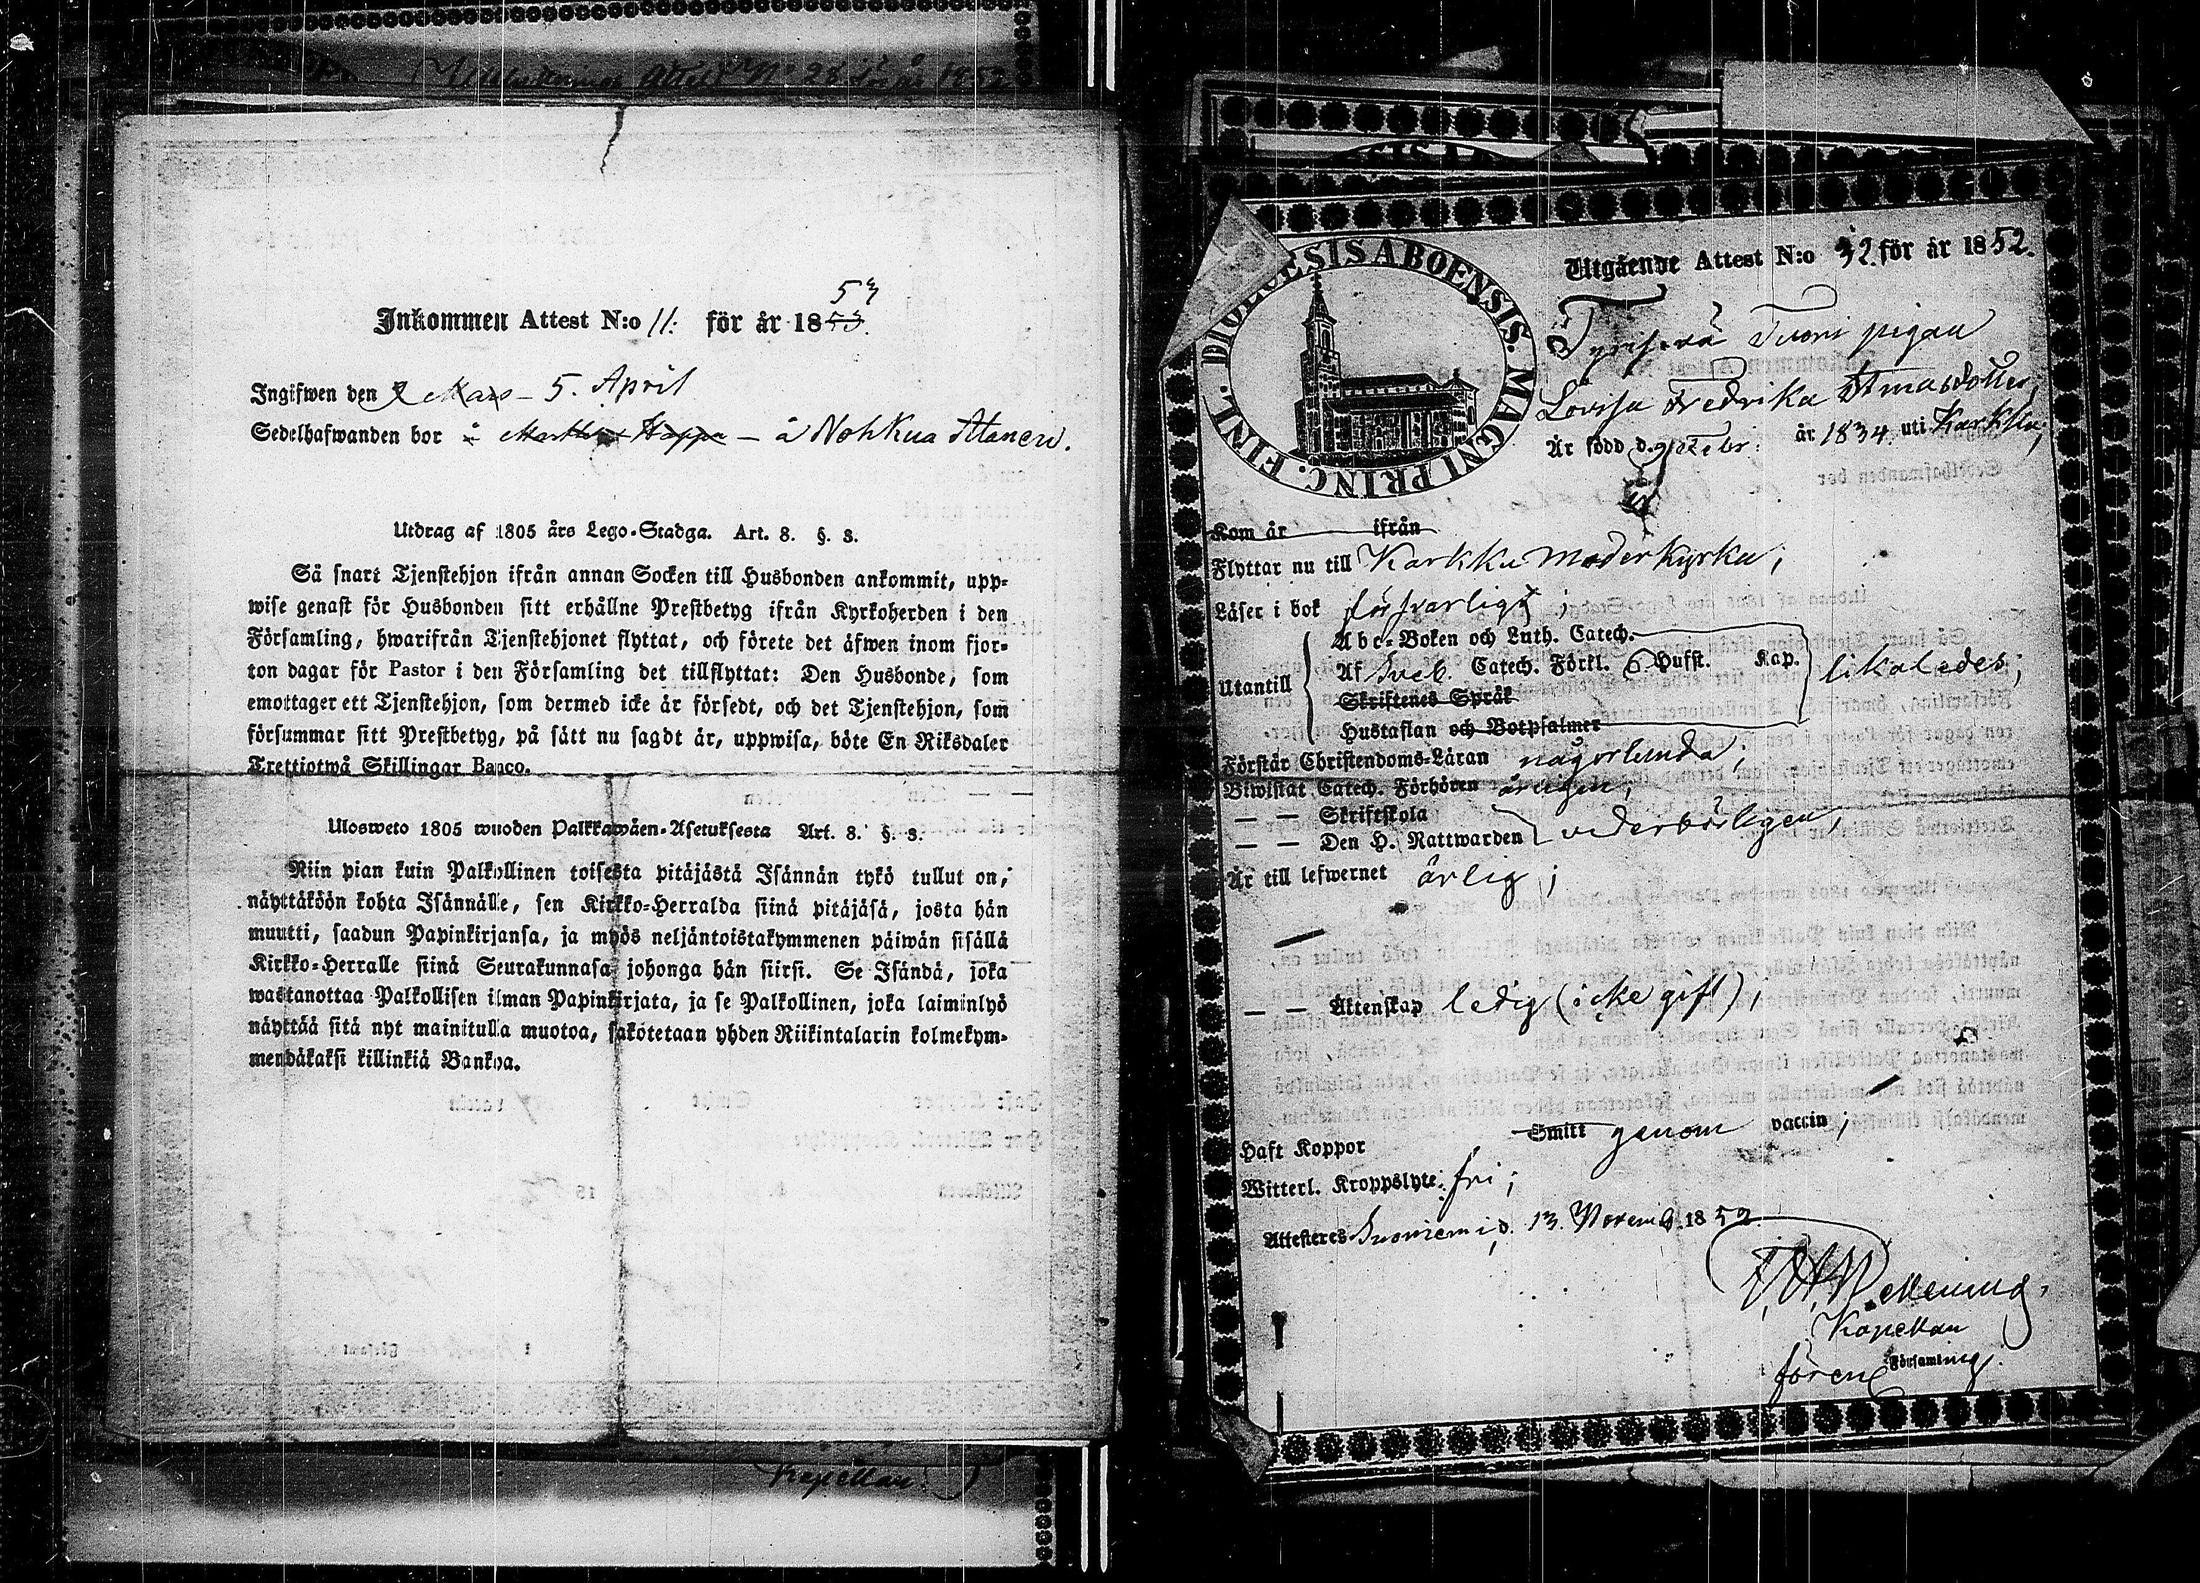 Attest No 28 för år 1852
Inkommen Attest N:o 11. för år 1853. 53
Ingifwen den 2 Mars - 5. April
Sedelhafwanden bor å Happa - å Nohkua
Utdrag af 1805 års Lego-Stadga. Art. 8. §. 8.
Så snart Tjenstehjon ifrån annan Socken till Husbonden ankommit, upp-
wise genast för Husbonden sitt erhållne Prestbetyg ifrån Kyrkoherden i den
Församling, hwarifrån Tjenstehjonet flyttat, och förete det äfwen inom fjor-
ton dagar för Pastor i den Församling det tillflyttat: Den Husbonde, som
emottager ett Tjenstehjon, som dermed icke är försedt, och det Tjenstehjon, som
försummar sitt Prestbetyg, på sätt nu sagdt är, uppwisa, böte En Riksdaler
Trettiotwå Skillingar Banco.
Ulosweto 1805 wuoden Palkkawäen-Asetuksesta Art. 8. §. 8.
Niin pian kuin Palkollinen toisesta pitäjästä Isännän tykö tullut on,
näyttäköön kohta Isännälle, sen Kirkko-Herralda siinä pitäjäsä, josta hän
muutti, saadun Papinkirjansa, ja myös neljäntoistakymmenen päiwän sisällä
Kirkko-Herralle siinä Seurakunnasa johonga hän siirsi. Se Isändä, joka
wastanottaa Palkollisen ilman Papinkirjata, ja se Palkollinen, joka laiminlyö
näyttää sitä nyt mainitulla muotoa, sakotetaan yhden Riikintalarin kolmekym-
mendäkaksi killinkiä Bankoa.
Kapellan.
DIOECESIS ABOENSIS. MAGNI PRINC. FINL.
Utgående Attest N:o 32. för år 1852.
Tuori pigan
Lovisa Fredrika
Är född d. Febr: år 1834 uti Karkku;
Kom år ifrån
Flyttar nu till Karkku Moderkyrka;
Läser i bok försvarligt;
Utantill
Abc-Boken och Luth. Catech.
Af Sveb. Catech. Förkl. 6 Hufst. Kap. likaledes;
Skriftenes Språk
Hustaflan och Botpsalmer
Förstår Christendoms-Läran någorlunda;
Biwistat Catech. Förhören årligen;
— — Skriftskola
— — Den H. Nattwarden vederbörligen;
Är till lefwernet ärlig;
— — Äktenskap ledig (icke gift);
Haft Koppor Smitt genom vaccin;
Witterl. Kroppslyte: fri;
Attesteres Suoniemi, d. 13. Novemb. 1852.
Kapellan
Församling.